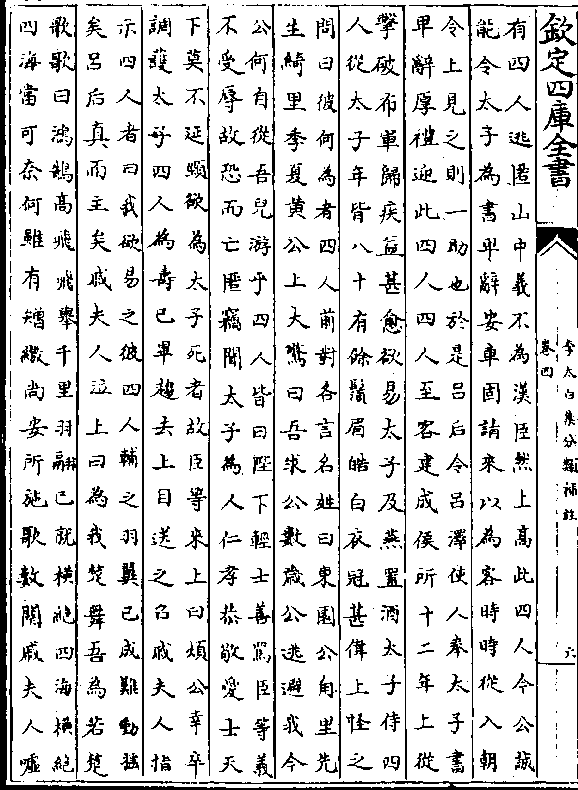 欽定四庫全書
李太白集分類補註
卷四
六
有四人逃匿山中義不為漢臣然上高此四人今公誠
能令太子為書卑辭安車固請來以為客時時從入朝
令上見之則一助也於是吕后令吕澤使人奉太子書
卑辭厚禮迎此四人四人至客建成侯所十二年上從
擊破布軍歸疾益甚愈欲易太子及燕置酒太子侍四
人從太子年皆八十有餘鬚眉皓白衣冠甚偉上怪之
問曰彼何為者四人前對各言名姓曰東園公甪里先
生綺里季夏黄公上大驚曰吾求公數歲公逃避我今
公何自從吾兒游乎四人皆曰陛下輕士善罵臣等義
不受辱故恐而亡匿竊聞太子為人仁孝恭敬愛士天
下莫不延頸欲為太子死者故臣等來上曰煩公幸卒
調護太子四人為壽已畢趨去上目送之召戚夫人指
示四人者曰我欲易之彼四人輔之羽翼已成難動摇
矣吕后真而主矣戚夫人泣上曰為我楚舞吾為若楚
歌歌曰鴻鵠高飛飛舉千里羽翮已就横絶四海横絶
四海當可奈何雖有矰繳尚安所施歌數闋戚夫人嘘